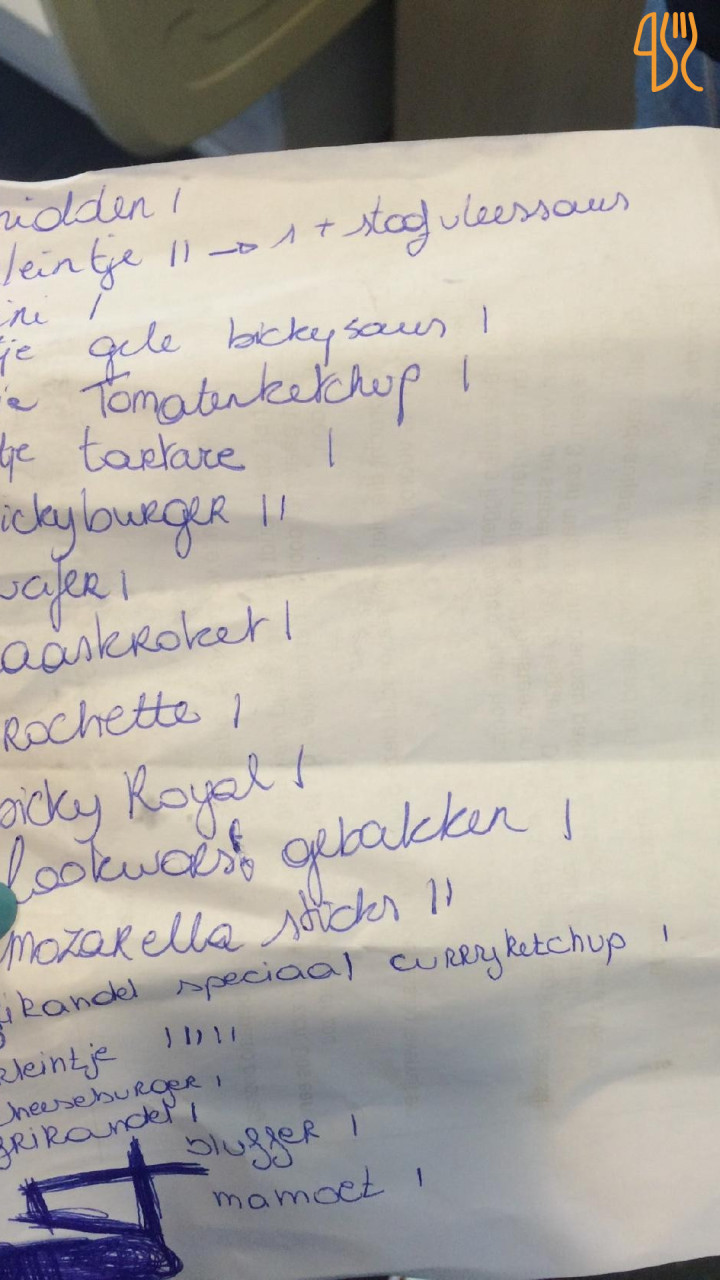 midden I
kleintje II → 1 + stoofvleessaus
ini I
tje gele bickysaus I
je Tomatenketchup I
tje tartare I
ickyburger II
vafer I
aaskroket I
rochette I
bicky Royal I
lookworst gebakken I
mozarella sticks II
ikandel speciaal curryketchup I
kleintje IIIII
cheeseburger I
frikandel I
blugger I
mamoet I